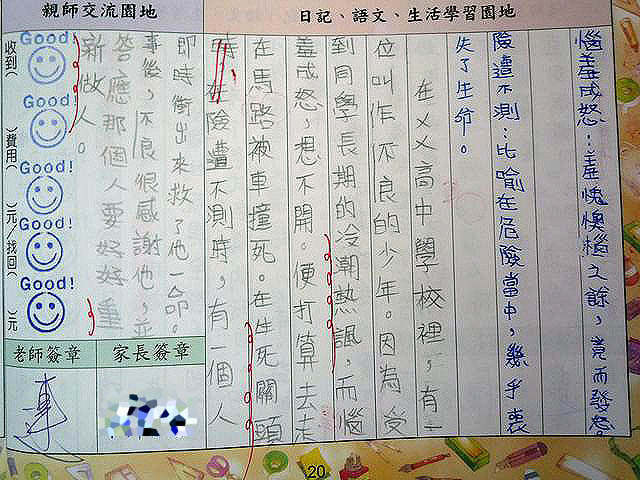 親師交流園地
日記、語文、生活學習園地
惱羞成怒:羞愧懊惱之餘,竟而發怒。
險遭不測:比喻在危險當中,幾乎喪
失了生命。
在ㄨㄨ高中學校裡,有一
位叫作不良的少年。因為受
到同學長期的冷潮熱諷,而惱
羞成怒,想不開。便打算去走
在馬路被車撞死。在生死關頭
時在險遭不測時,有一個人
即時衝出來救了他一命。
事後,不良很感謝他,並
答應那個人要好好重
新做人。
Good!
Good!
Good!
Good!
Good!
收到(
)費用(
)元/找回(
)元
老師簽章
家長簽章
20